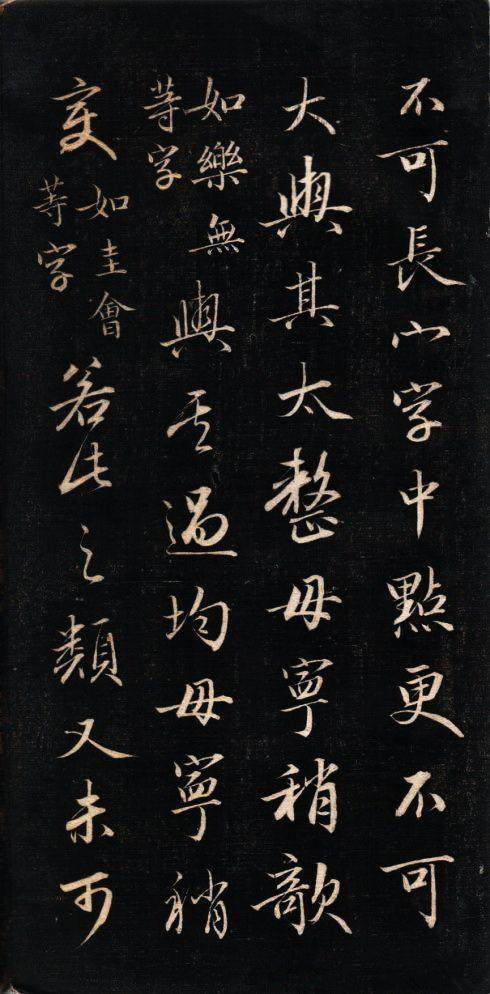 不可長小字中點更不可
大與其太整毋寧稍欹
如樂無等字與其過均毋寧稍
変如圭會等字若此之類又未可